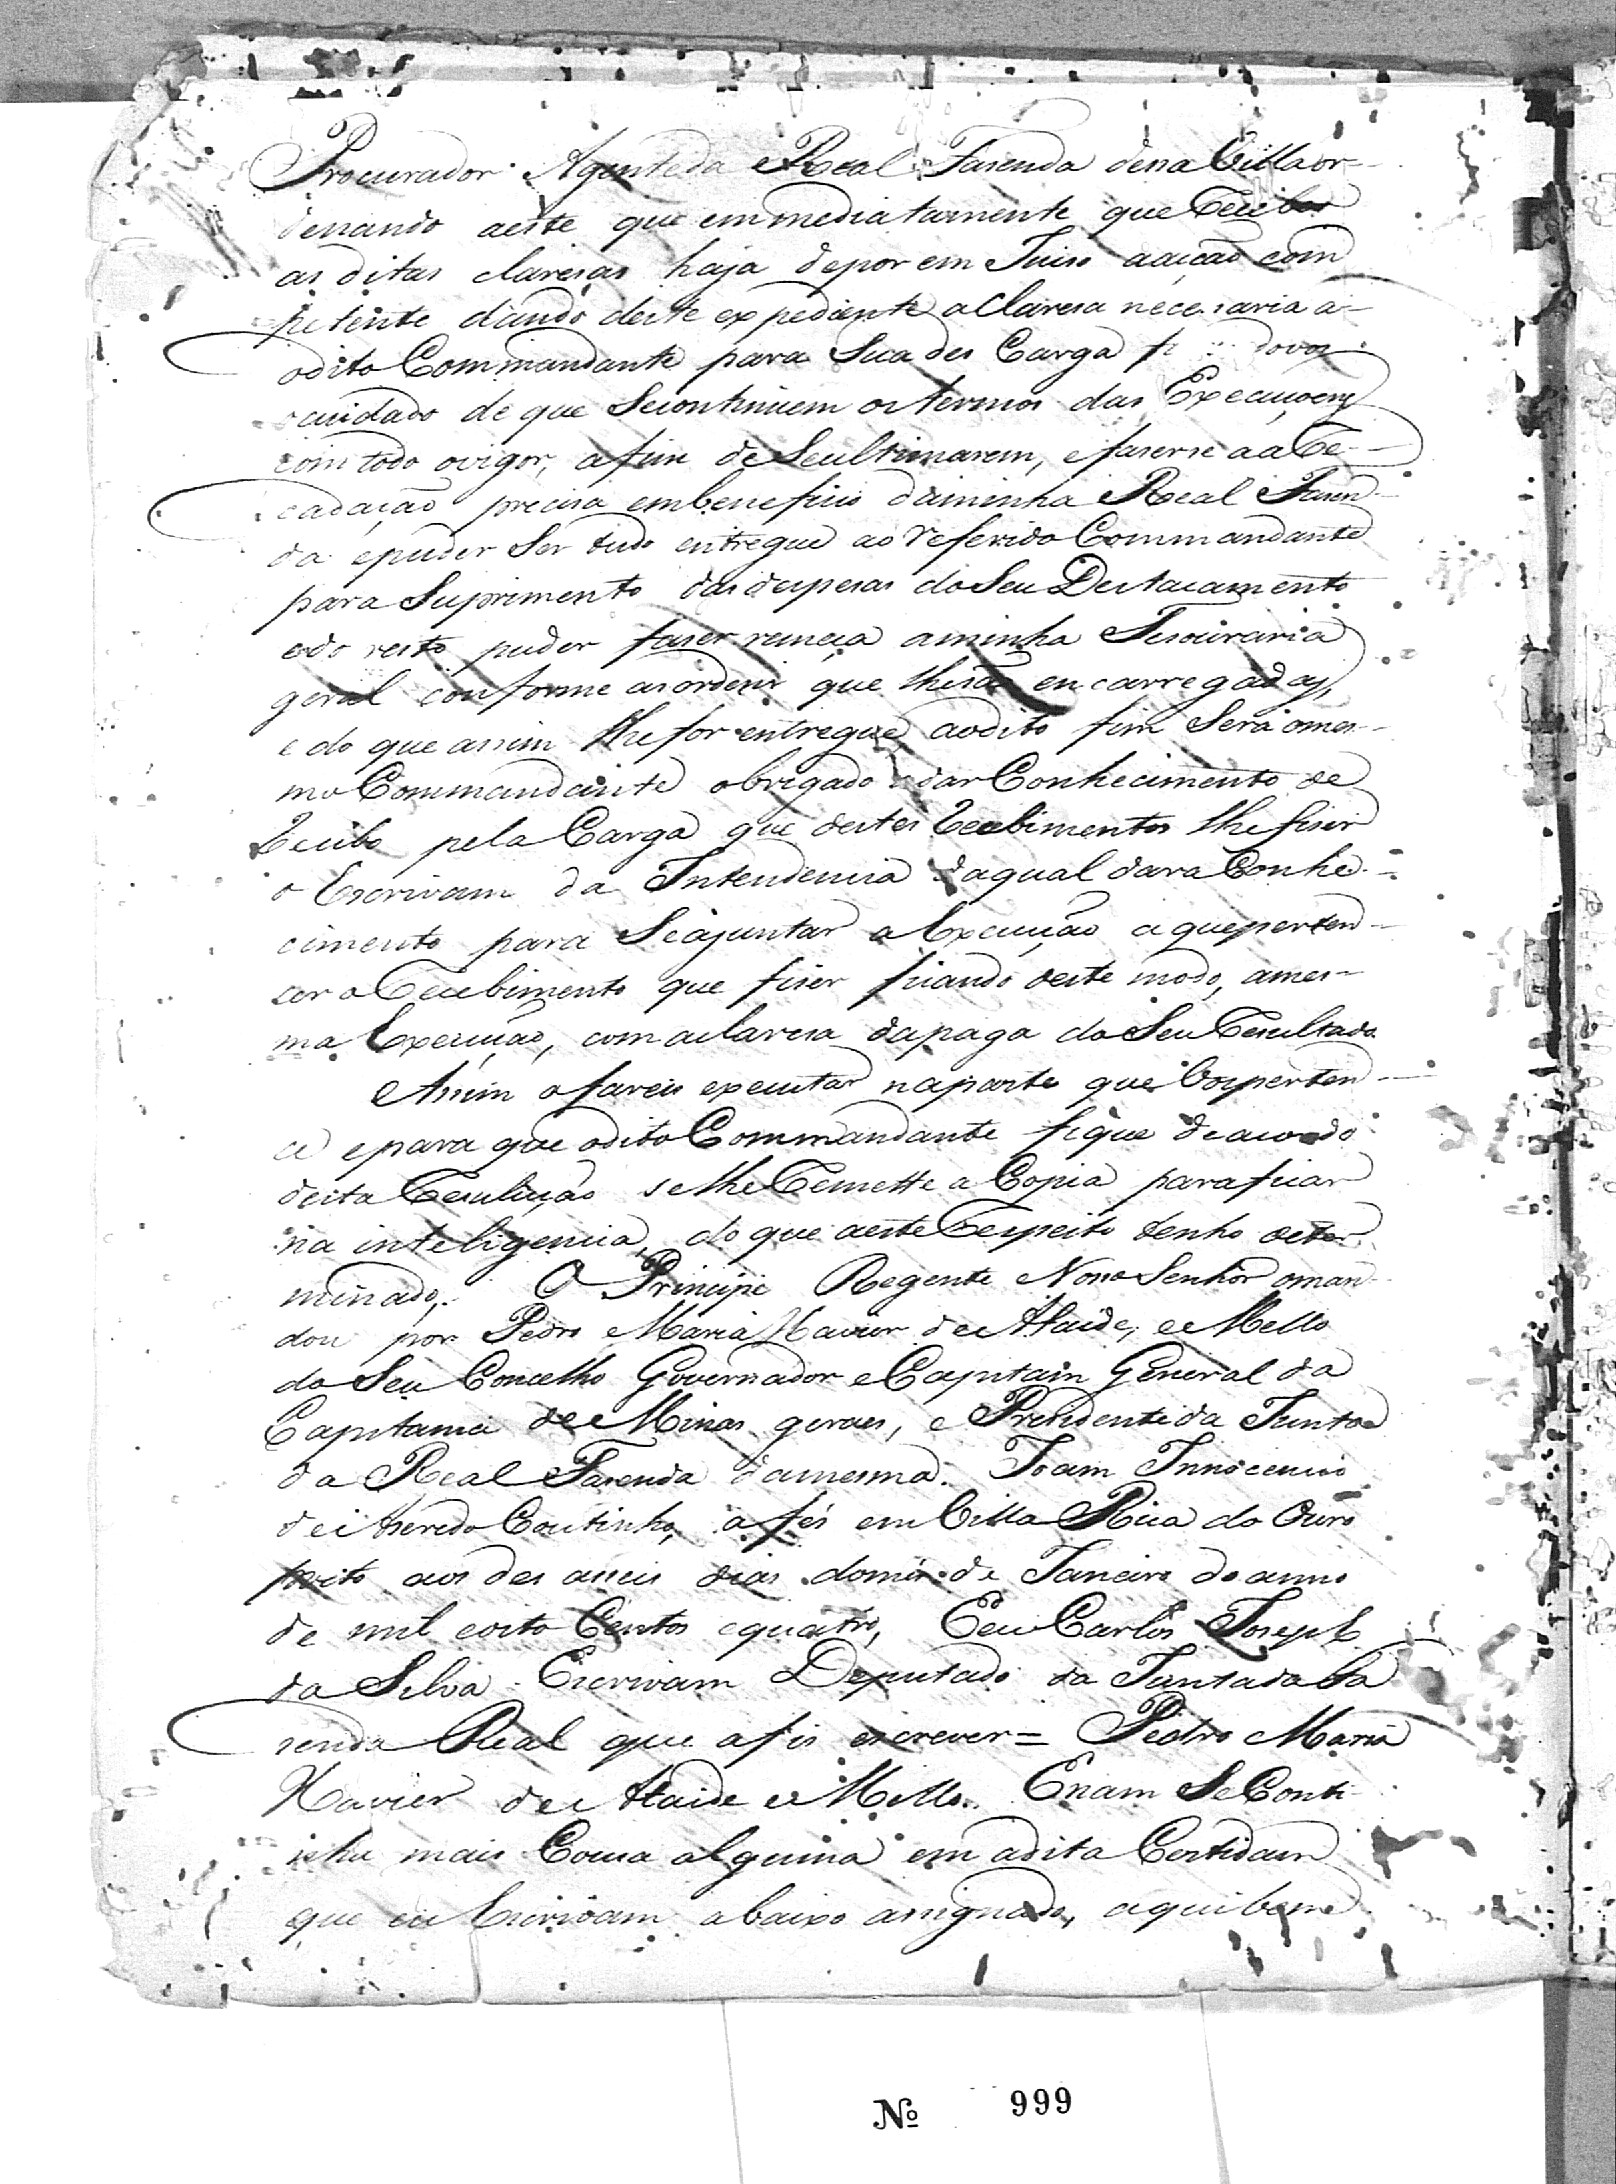 Procurador Agenteda Real Fasenda dessa Villa or-
denando aeste que emmediatamente que Receber
as ditas claresas haja depor em Juiso aaição com
petente dando deste expediente aClaresa necessaria a-
odito Commandante para Sua des Carga
cuidado de que Secontinuem os termos das Execuçoens
com todo ovigor, afim deSeultimarem, efaserse aaRe-
cadação precisa embeneficio daminha Real Fasen-
da epuder Ser tudo entregue ao Referido Commandante
para Suprimento das despesas doSeu Destacamento
edo resto puder faser remeça aminha Tesouraria
geral conforme asordens que lhesão encarregadas,
e do que assim lhe for entregue aodito fim Será omes-
mo Commandante obrigado adar Conhecimento de
Recibo pela Carga que destes Recebimentos lhe fiser
o Escrivam da Intendencia daqual dara Conhe-
cimento para Seajuntar aExecução aqueperten-
cer o Recebimento que fiser ficando deste modo, ames-
ma Execução, com aclaresa dapaga do Seu Resultado.
Assim ofareis executar naparte que Vosperten-
ce epara que odito Commandante fique deacordo
desta Resulução selhe Remette a Copia paraficar
na inteligencia, do que aeste Respeito tenho deter-
minado. O Principe Regente Nosso Senhor oman-
dou por Pedro Maria Xavier de Ataide, e Mello
do Seu Concelho Governador e Capitam General da
Capitania de Minas geraes, e Presidente da Junta
da Real Fasenda damesma. Joam Innocencio
de Aseredo Coutinho, a fés em Villa Rica do Ouro
preto aos des asseis dias domês de Janeiro do anno
de mil eoito Centos equatro, Eeu Carlos Joseph
da Silva Escrivam Deputado da Juntada Fa
senda Real que afis escrever = Pedro Maria
Xavier de Ataide e Mello. Enam Se Conti-
nha mais Cousa alguma em adita Certidam
que eu Escrivam abaixo assignado, aqui bem e
Nº 999